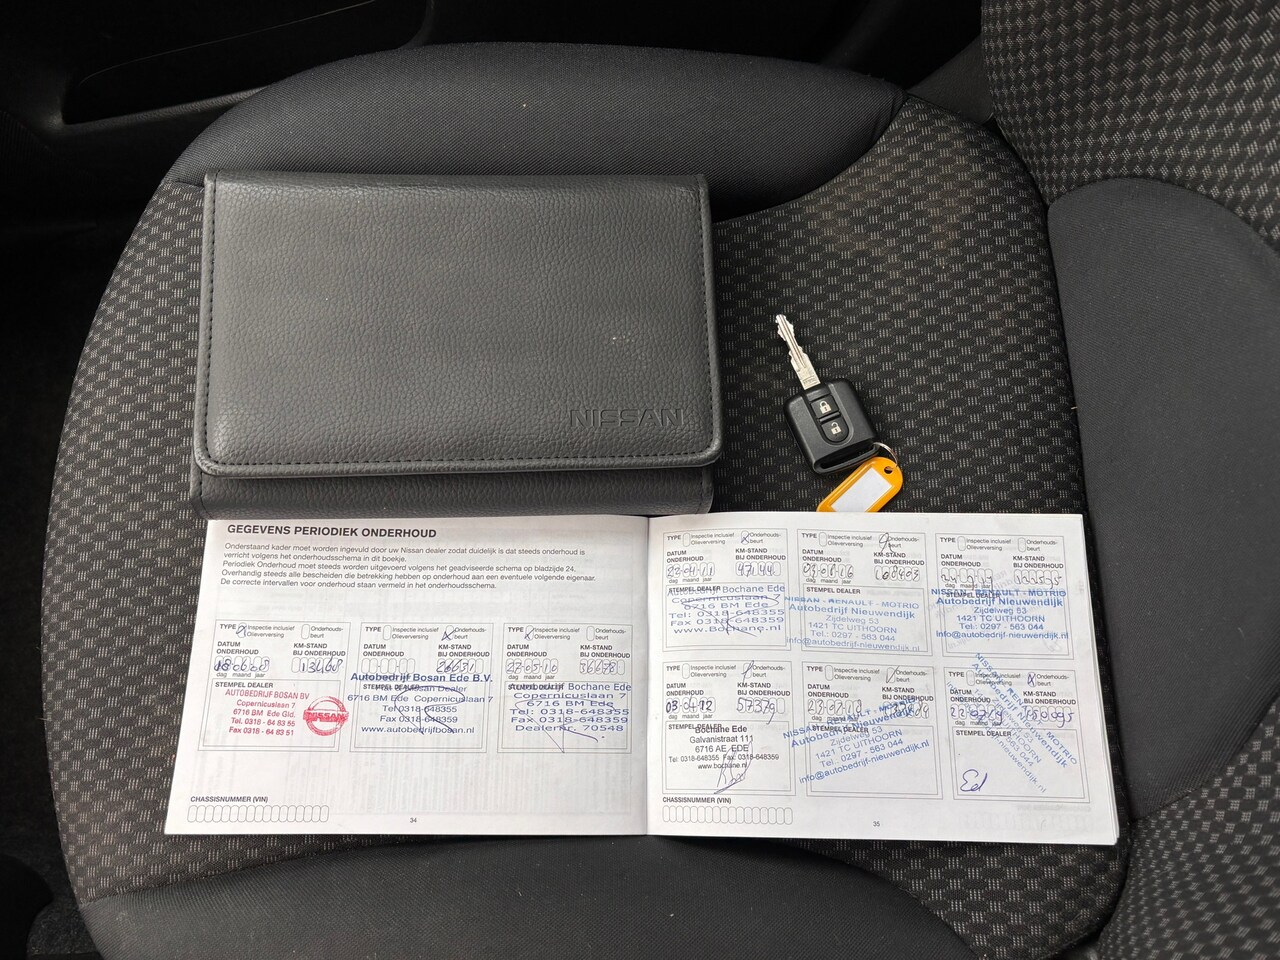 NISSAN
GEGEVENS PERIODIEK ONDERHOUD
Onderstaand kader moet worden ingevuld door uw Nissan dealer zodat duidelijk is dat steeds onderhoud is
verricht volgens het onderhoudsschema in dit boekje.
Periodiek Onderhoud moet steeds worden uitgevoerd volgens het geadviseerde schema op bladzijde 24.
Overhandig steeds alle bescheiden die betrekking hebben op onderhoud aan een eventuele volgende eigenaar.
De correcte intervallen voor onderhoud staan vermeld in het onderhoudsschema.
TYPE Inspectie inclusief Olieverversing Onderhouds-beurt
DATUM ONDERHOUD KM-STAND BIJ ONDERHOUD
18 06 08 13468
dag maand jaar
STEMPEL DEALER
AUTOBEDRIJF BOSAN BV
Copernicuslaan 7
6716 BM Ede Gld.
Tel. 0318 - 64 83 55
Fax 0318 - 64 83 51
NISSAN
TYPE Inspectie inclusief Olieverversing Onderhouds-beurt
DATUM ONDERHOUD KM-STAND BIJ ONDERHOUD
26651
Autobedrijf Bosan Ede B.V.
Nissan Dealer
6716 BM Ede Copernicuslaan 7
Tel 0318-648355
Fax 0318-648359
www.autobedrijfbosan.nl
TYPE Inspectie inclusief Olieverversing Onderhouds-beurt
DATUM ONDERHOUD KM-STAND BIJ ONDERHOUD
27 05 10 36678
dag maand jaar
STEMPEL DEALER
Autobedrijf Bochane Ede
Copernicuslaan 7
6716 BM Ede
Tel: 0318-648355
Fax 0318-648359
Dealernr. 70548
CHASSISNUMMER (VIN)
34
TYPE Inspectie inclusief Olieverversing Onderhouds-beurt
DATUM ONDERHOUD KM-STAND BIJ ONDERHOUD
22 04 11 47144
dag maand jaar
STEMPEL DEALER
Autobedrijf Bochane Ede
Copernicuslaan 7
6716 BM Ede
Tel: 0318-648355
Fax 0318-648359
www.Bochane.nl
TYPE Inspectie inclusief Olieverversing Onderhouds-beurt
DATUM ONDERHOUD KM-STAND BIJ ONDERHOUD
dag maand jaar
STEMPEL DEALER
NISSAN - RENAULT - MOTRIO
Autobedrijf Nieuwendijk
Zijdelweg 53
1421 TC UITHOORN
Tel.: 0297 - 563 044
info@autobedrijf-nieuwendijk.nl
TYPE Inspectie inclusief Olieverversing Onderhouds-beurt
DATUM ONDERHOUD KM-STAND BIJ ONDERHOUD
dag maand jaar
STEMPEL DEALER
NISSAN - RENAULT - MOTRIO
Autobedrijf Nieuwendijk
Zijdelweg 53
1421 TC UITHOORN
Tel.: 0297 - 563 044
info@autobedrijf-nieuwendijk.nl
TYPE Inspectie inclusief Olieverversing Onderhouds-beurt
DATUM ONDERHOUD KM-STAND BIJ ONDERHOUD
03 04 12 57379
dag maand jaar
STEMPEL DEALER
Bochane Ede
Galvanistraat 111
6716 AE EDE
Tel: 0318-648355 Fax: 0318-648359
www.bochane.nl
TYPE Inspectie inclusief Olieverversing Onderhouds-beurt
DATUM ONDERHOUD KM-STAND BIJ ONDERHOUD
dag maand jaar
STEMPEL DEALER
Autobedrijf Nieuwendijk
Zijdelweg 53
1421 TC UITHOORN
Tel.: 0297 - 563 044
info@autobedrijf-nieuwendijk.nl
TYPE Inspectie inclusief Olieverversing Onderhouds-beurt
DATUM ONDERHOUD KM-STAND BIJ ONDERHOUD
dag maand jaar
STEMPEL DEALER
Ed
CHASSISNUMMER (VIN)
35